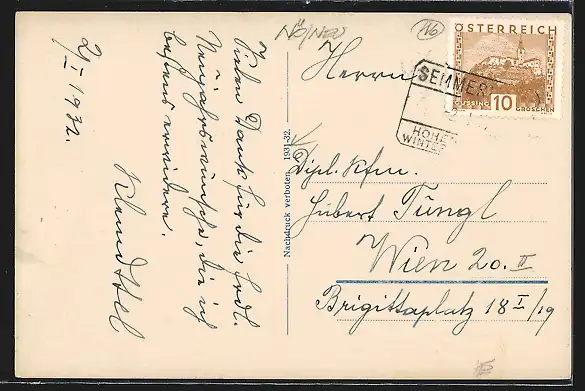 NÖ/NEU
116
2/I 1932.
Vielen Dank für die frdl.
Neujahrswünsche, die ich
bestens erwidere.
Nachdruck verboten. 1931-32.
ÖSTERREICH
GÜSSING 10 GROSCHEN
SEMMER
HÖHE
WINTER
Herrn
Dipl. Kfm.
Hubert Tüngl
Wien 20. II
Brigittaplatz 18 I/19